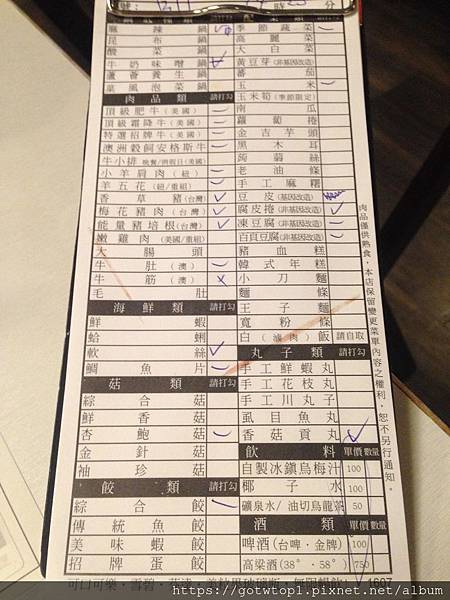 號:
時
分
鍋底種類 請打勾
麻辣鍋
昆布鍋
酸菜鍋
牛奶味噌鍋
蘆薈養生鍋
韓風泡菜鍋
肉品類 請打勾
頂級肥牛(美國)
頂級霜降牛(美國)
特選招牌牛(美國)
澳洲穀飼安格斯牛
牛小排 晚餐/例假日(美國)
小羊肩肉(紐)
羊五花(紐/重組)
香草豬(台灣)
梅花豬肉(台灣)
能量豬培根(台灣)
嫩雞肉(美國/重組)
大腸頭
牛肚(澳)
牛筋(澳)
毛肚
海鮮類 請打勾
鮮蝦
蛤蜊
軟絲
鯛魚片
菇類 請打勾
綜合菇
鮮香菇
杏鮑菇
金針菇
袖珍菇
餃類 請打勾
綜合餃
傳統魚餃
美味蝦餃
招牌蛋餃
配菜類 請打勾
季節蔬菜
高麗菜
大白菜
黃豆芽(非基因改造)
番茄
玉米
玉米筍(季節限定)
南瓜
蘿蔔捲
金吉芋頭
黑木耳
蒟蒻絲
老油條
手工麻糬
豆皮(基因改造)
腐皮捲(非基因改造)
凍豆腐(非基因改造)
百頁豆腐(非基因改造)
豬血糕
韓式年糕
小刀麵
麵條
王子麵
寬粉條
白(滷肉)飯 請自取
丸子類 請打勾
手工鮮蝦丸
手工花枝丸
手工川丸子
虱目魚丸
香菇貢丸
飲料 單價 數量
自製冰鎮烏梅汁 100
椰子水 100
礦泉水/油切烏龍茶 50
酒類 單價 數量
啤酒(台啤·金牌) 100
高粱酒(38°·58°) 750
肉品僅供熟食,本店保留變更菜單內容之權利,恕不另行通知。
1607
https://gotwtop1.pixnet.net/album